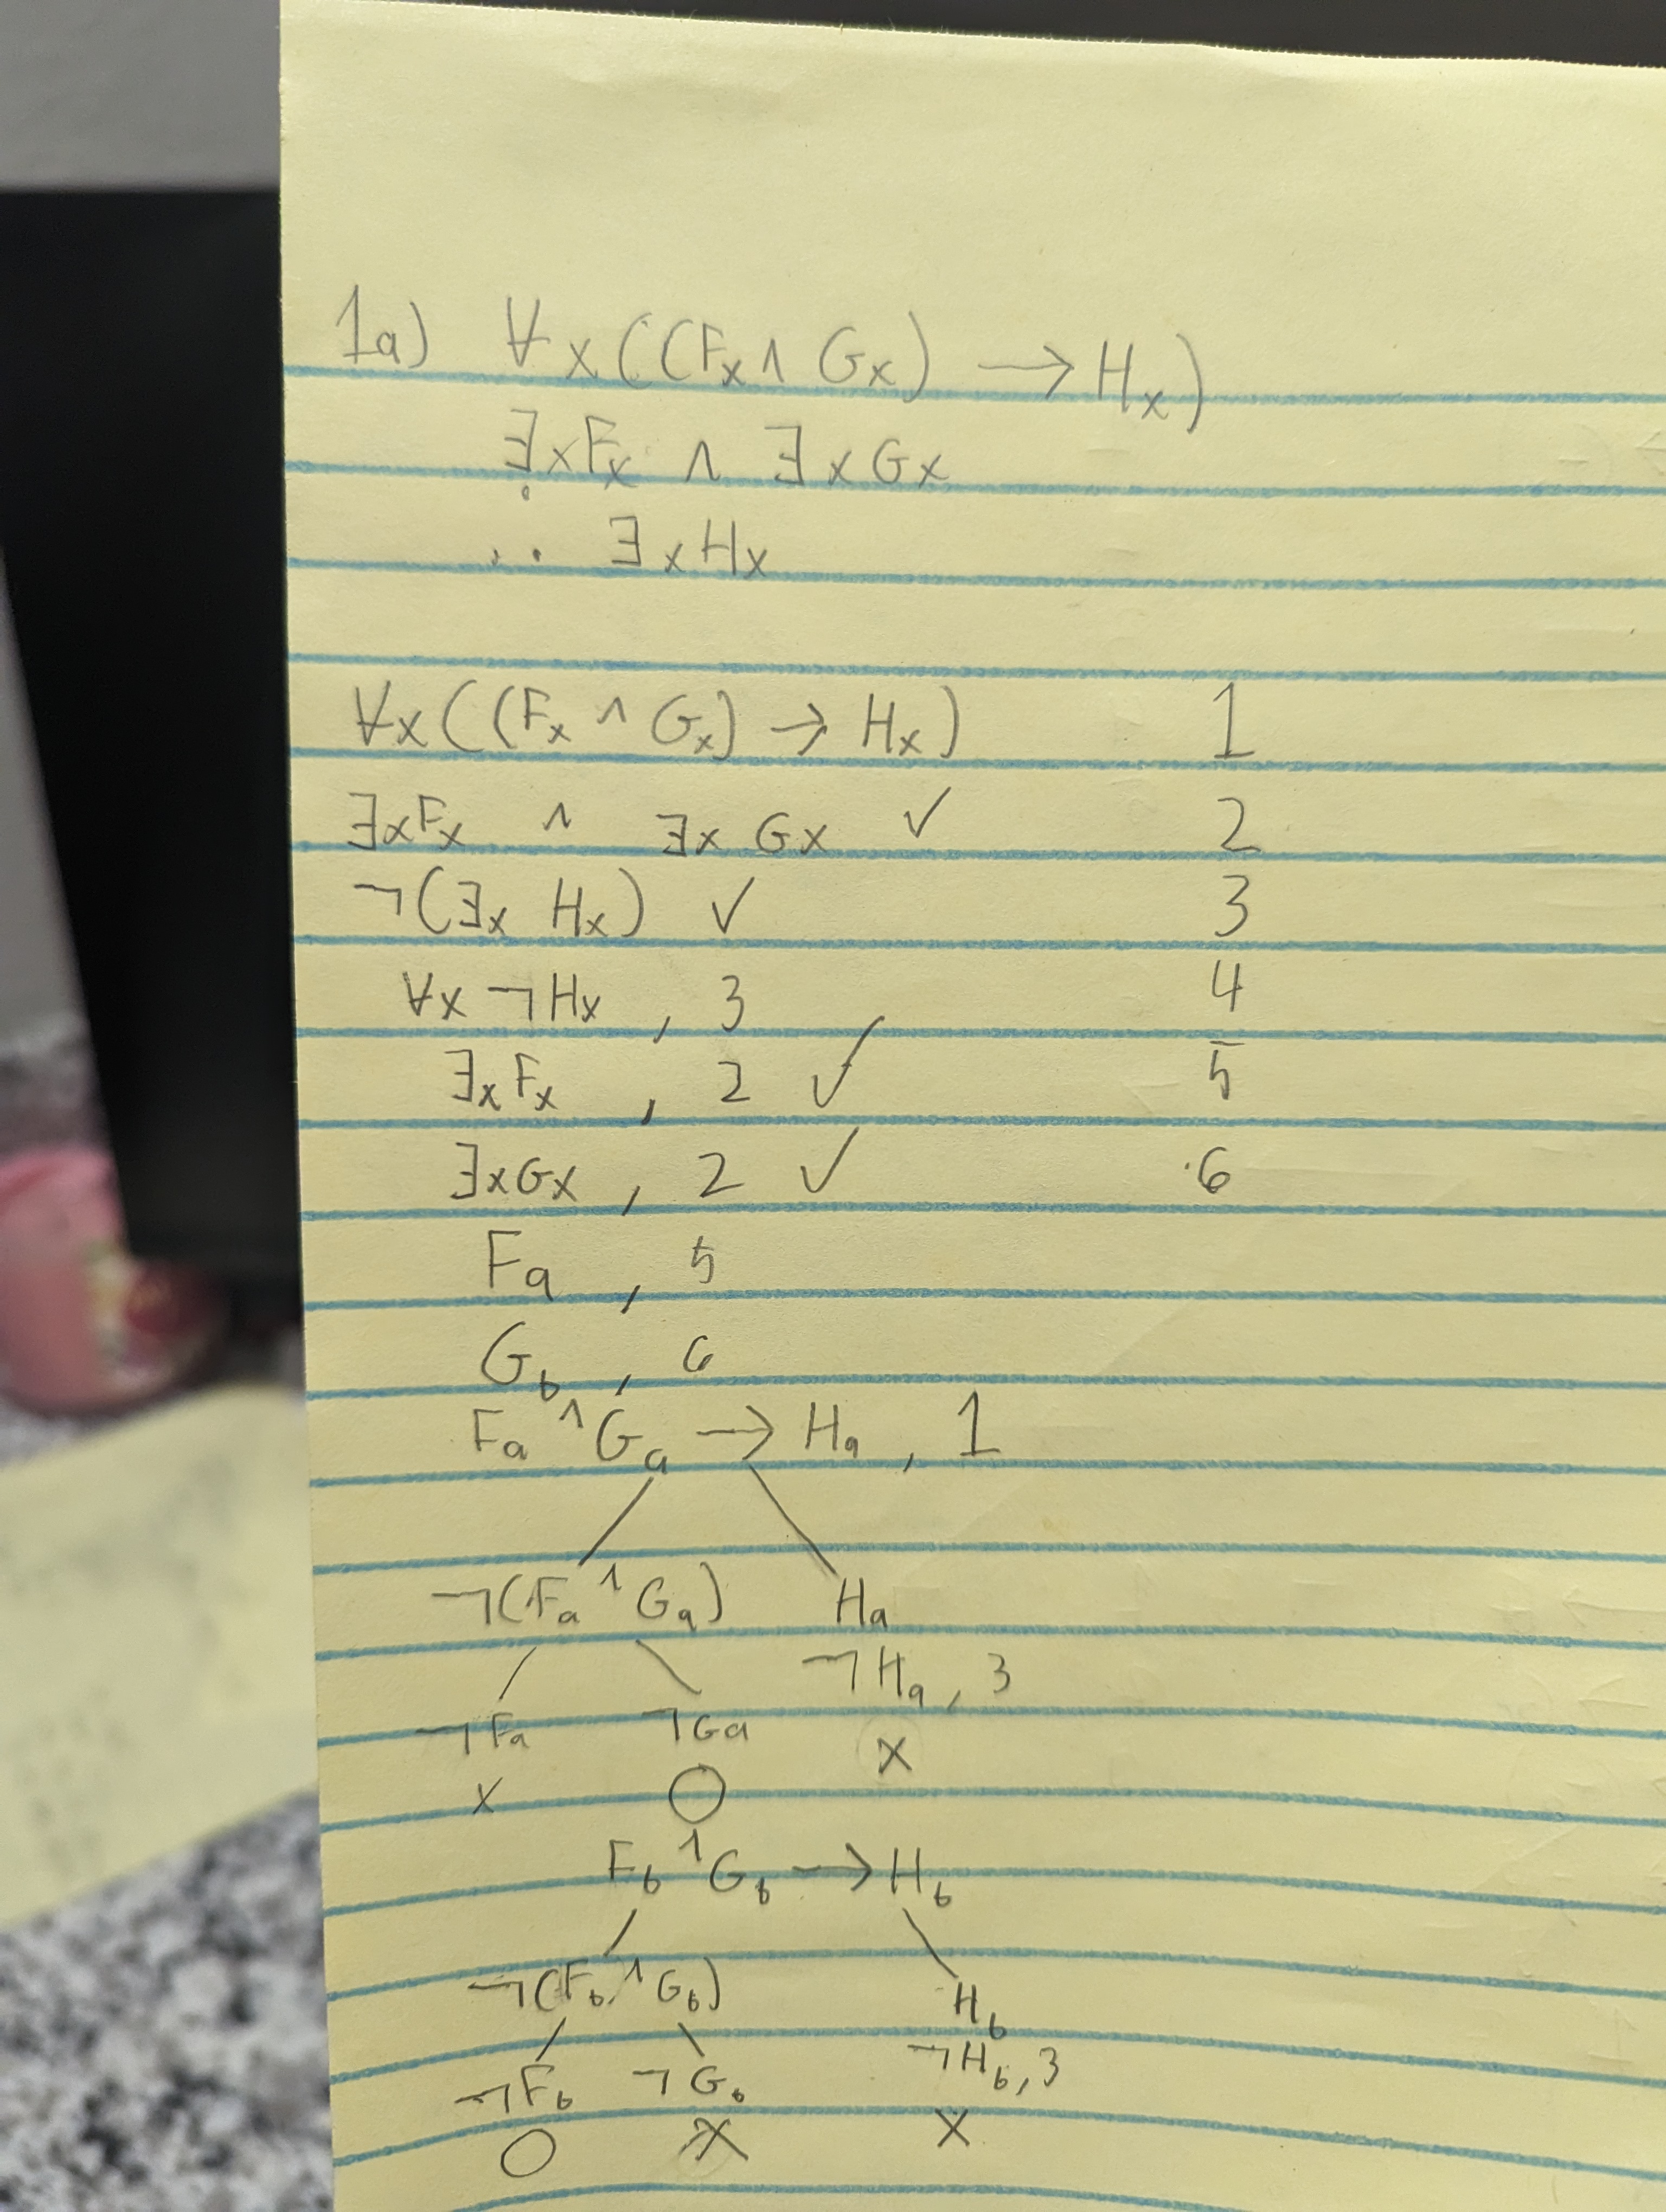 1a) ∀x((Fx ∧ Gx) → Hx)
∃xFx ∧ ∃xGx
∴ ∃xHx
∀x((Fx ∧ Gx) → Hx) 1
∃xFx ∧ ∃x Gx ✓ 2
¬(∃x Hx) ✓ 3
∀x ¬Hx , 3 4
∃xFx , 2 ✓ 5
∃xGx , 2 ✓ 6
Fa , 5
Gb , 6
Fa ∧ Ga → Ha , 1
¬(Fa ∧ Ga) Ha
¬Ha , 3
¬Fa ¬Ga
X
X ○
Fb ∧ Gb → Hb
¬(Fb ∧ Gb) Hb
¬Hb , 3
¬Fb ¬Gb
○ X X